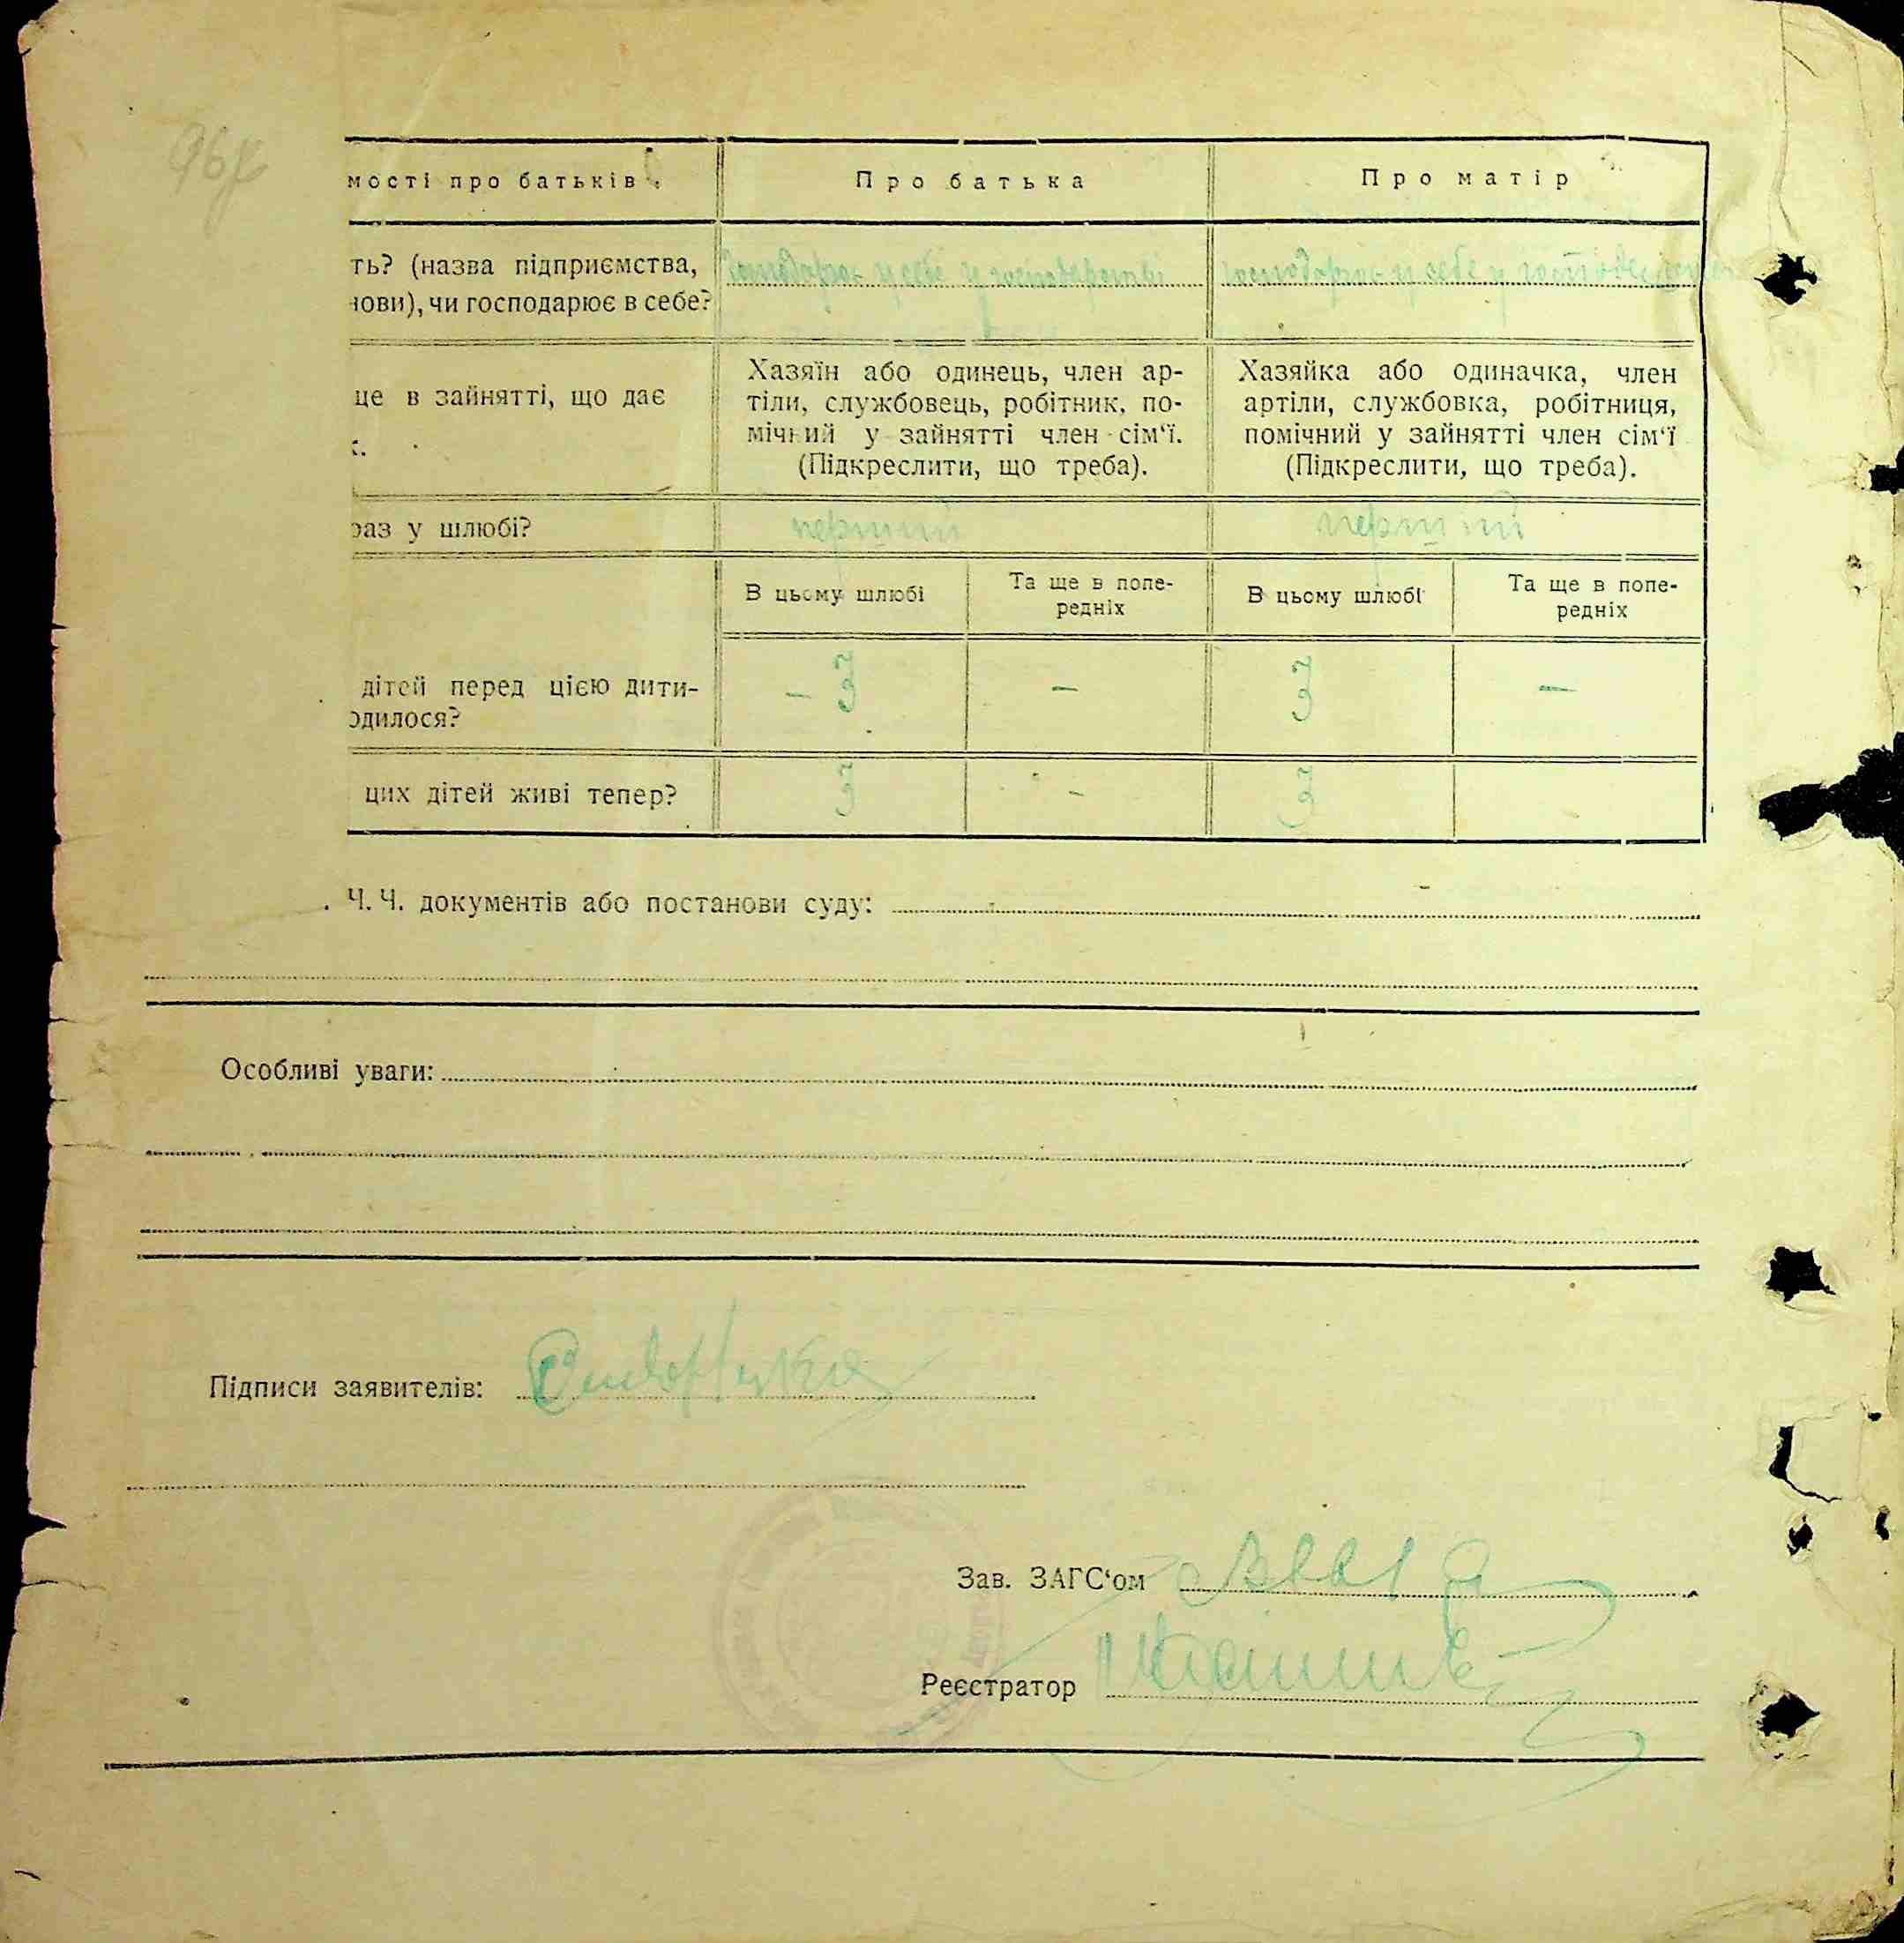 мості про батьків.
Про батька
Про матір
ть? (назва підприємства,
нови), чи господарює в себе?
господарює у себе у господарстві
господарює у себе у
це в зайнятті, що дає
Хазяїн або одинець, член ар-
тіли, службовець, робітник, по-
мічний у зайнятті член сім‘ї.
(Підкреслити, що треба).
Хазяйка або одиначка, член
артіли, службовка, робітниця,
помічний у зайнятті член сім‘ї
(Підкреслити, що треба).
раз у шлюбі?
перший
перший
В цьому шлюбі
Та ще в попе-
редніх
В цьому шлюбі
Та ще в попе-
редніх
дітей перед цією дити-
одилося?
– 3
–
3
–
цих дітей живі тепер?
3
–
3
Ч. Ч. документів або постанови суду:
Особливі уваги:
Підписи заявителів:
Зав. ЗАГС‘ом
Реєстратор